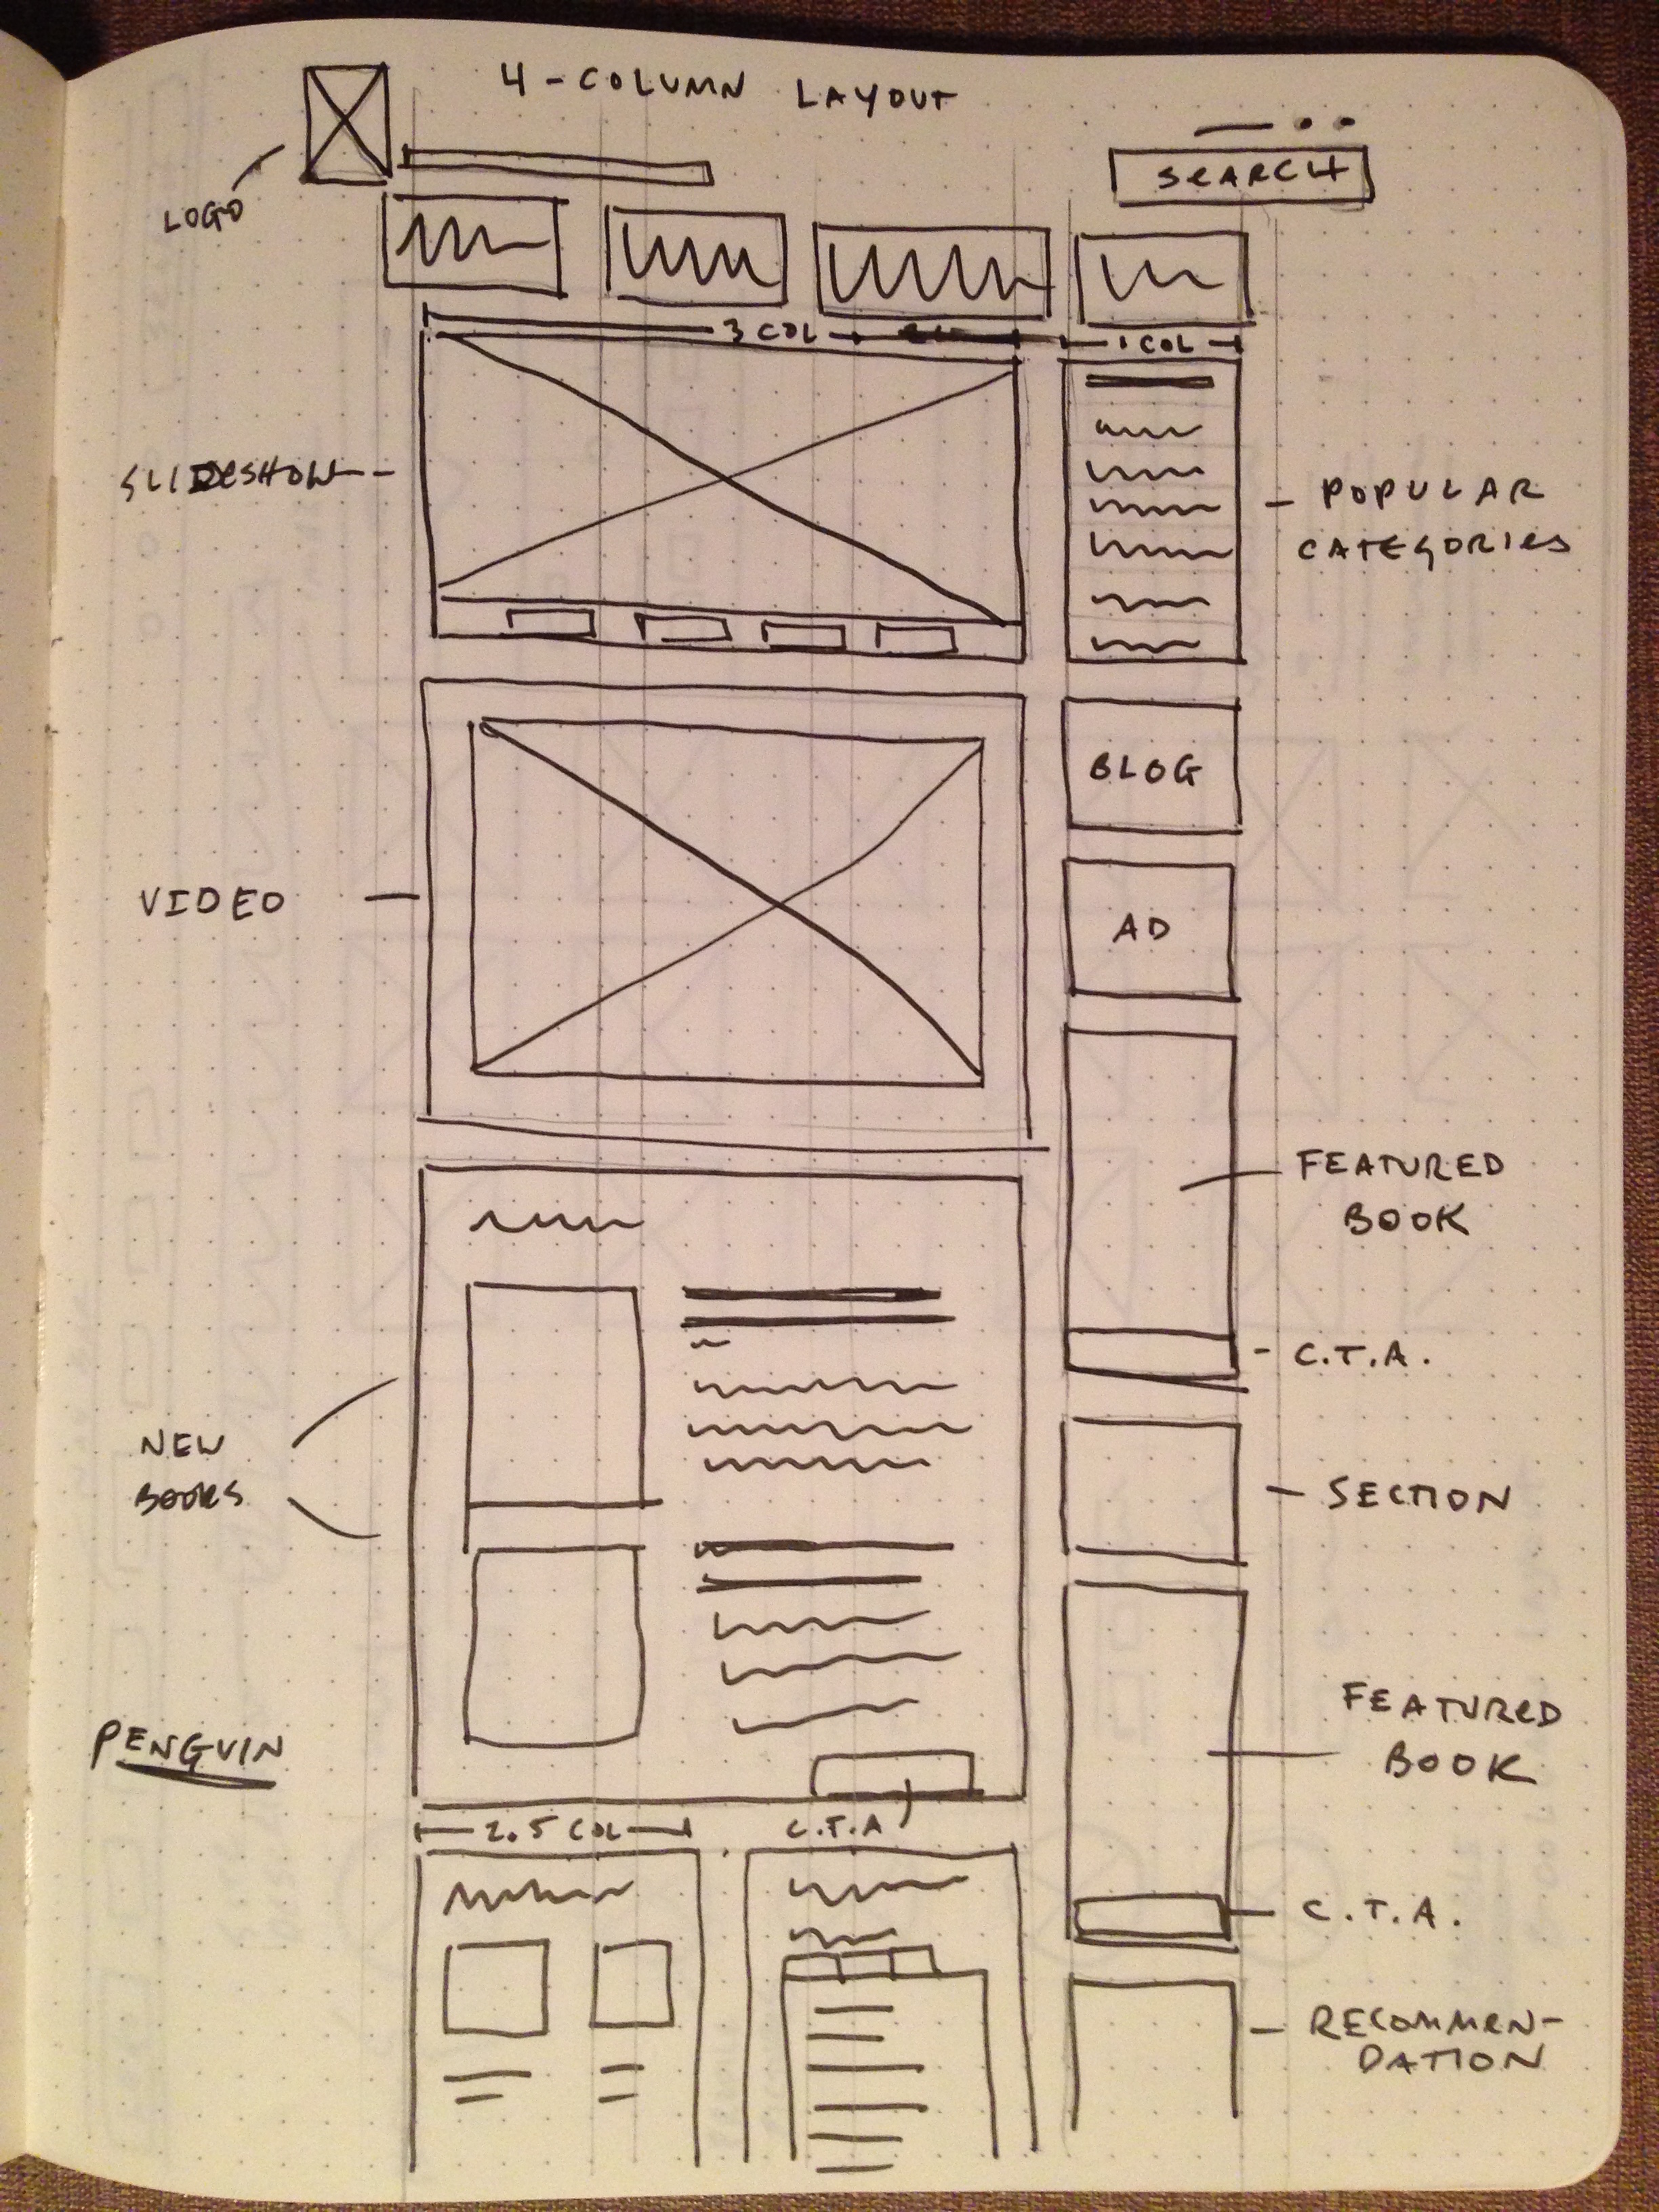 4-COLUMN LAYOUT
SEARCH
LOGO
3 COL
1 COL
SLIDESHOW
POPULAR
CATEGORIES
BLOG
VIDEO
AD
FEATURED
BOOK
C.T.A.
NEW
BOOKS
SECTION
FEATURED
BOOK
PENGUIN
2.5 COL
C.T.A
C.T.A.
RECOMMEN-
DATION